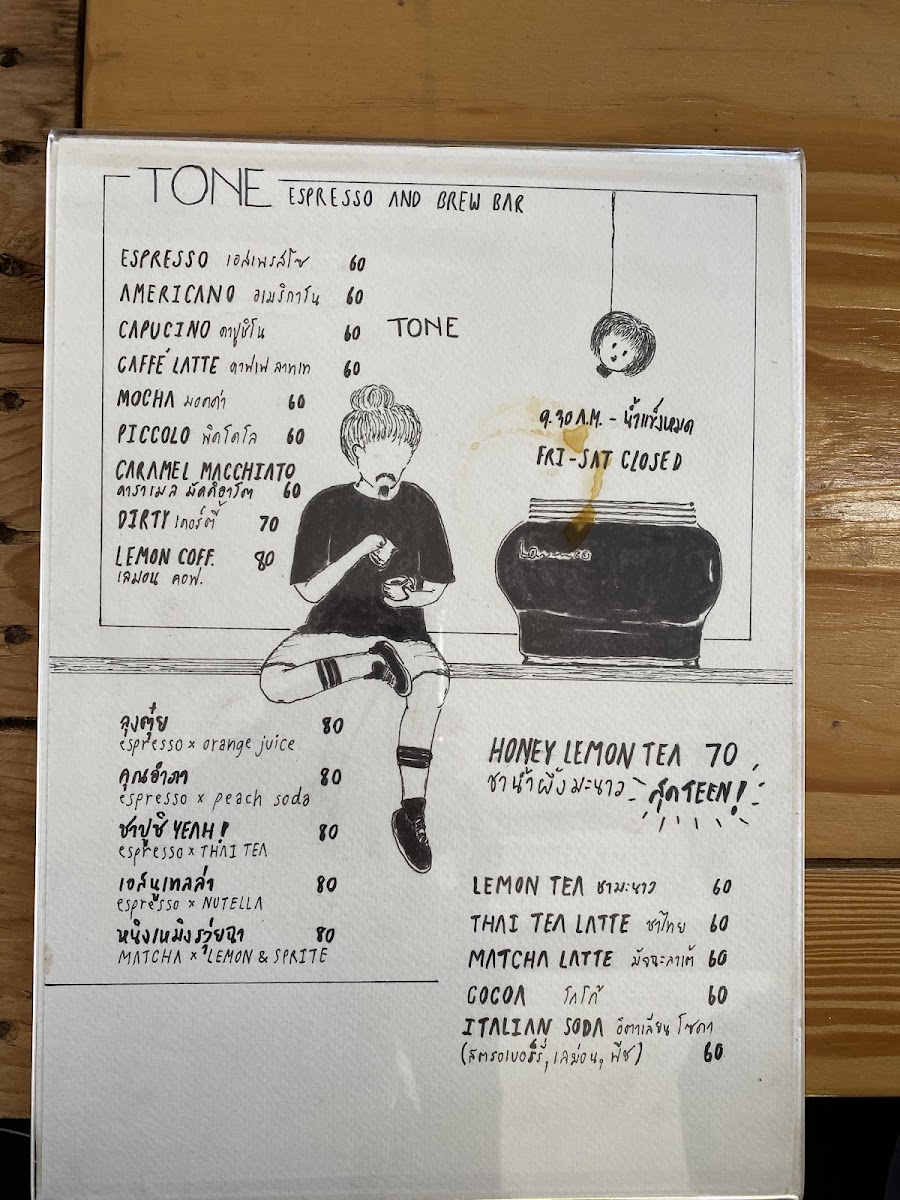 TONE ESPRESSO AND BREW BAR
ESPRESSO เอสเพรสโซ 60
AMERICANO อเมริกาโน 60
CAPUCINO คาปูชิโน 60
TONE
CAFFÉ LATTE คาฟเฟ ลาทเท 60
MOCHA มอคค่า 60
PICCOLO พิคโคโล 60
CARAMEL MACCHIATO
คาราเมล มัคคิอาโต 60
DIRTY เดอร์ตี้ 70
LEMON COFF. 80
เลมอน คอฟ.
9.30 A.M. - น้ำแข็งหมด
FRI-SAT CLOSED
ลุงตุ๋ย 80
espresso x orange juice
คุณอำภา 80
espresso x peach soda
ชาปูชิ YEAH! 80
espresso x THAI TEA
เอสนูเทลล่า 80
espresso x NUTELLA
หนิงเหมิงรุ่ยฉา 80
MATCHA x LEMON & SPRITE
HONEY LEMON TEA 70
ชาน้ำผึ้งมะนาว สุดTEEN!
LEMON TEA ชามะนาว 60
THAI TEA LATTE ชาไทย 60
MATCHA LATTE มัจฉะลาเต้ 60
COCOA โกโก้ 60
ITALIAN SODA อิตาเลียน โซดา
(สตรอเบอร์รี่, เลม่อน, พีช) 60